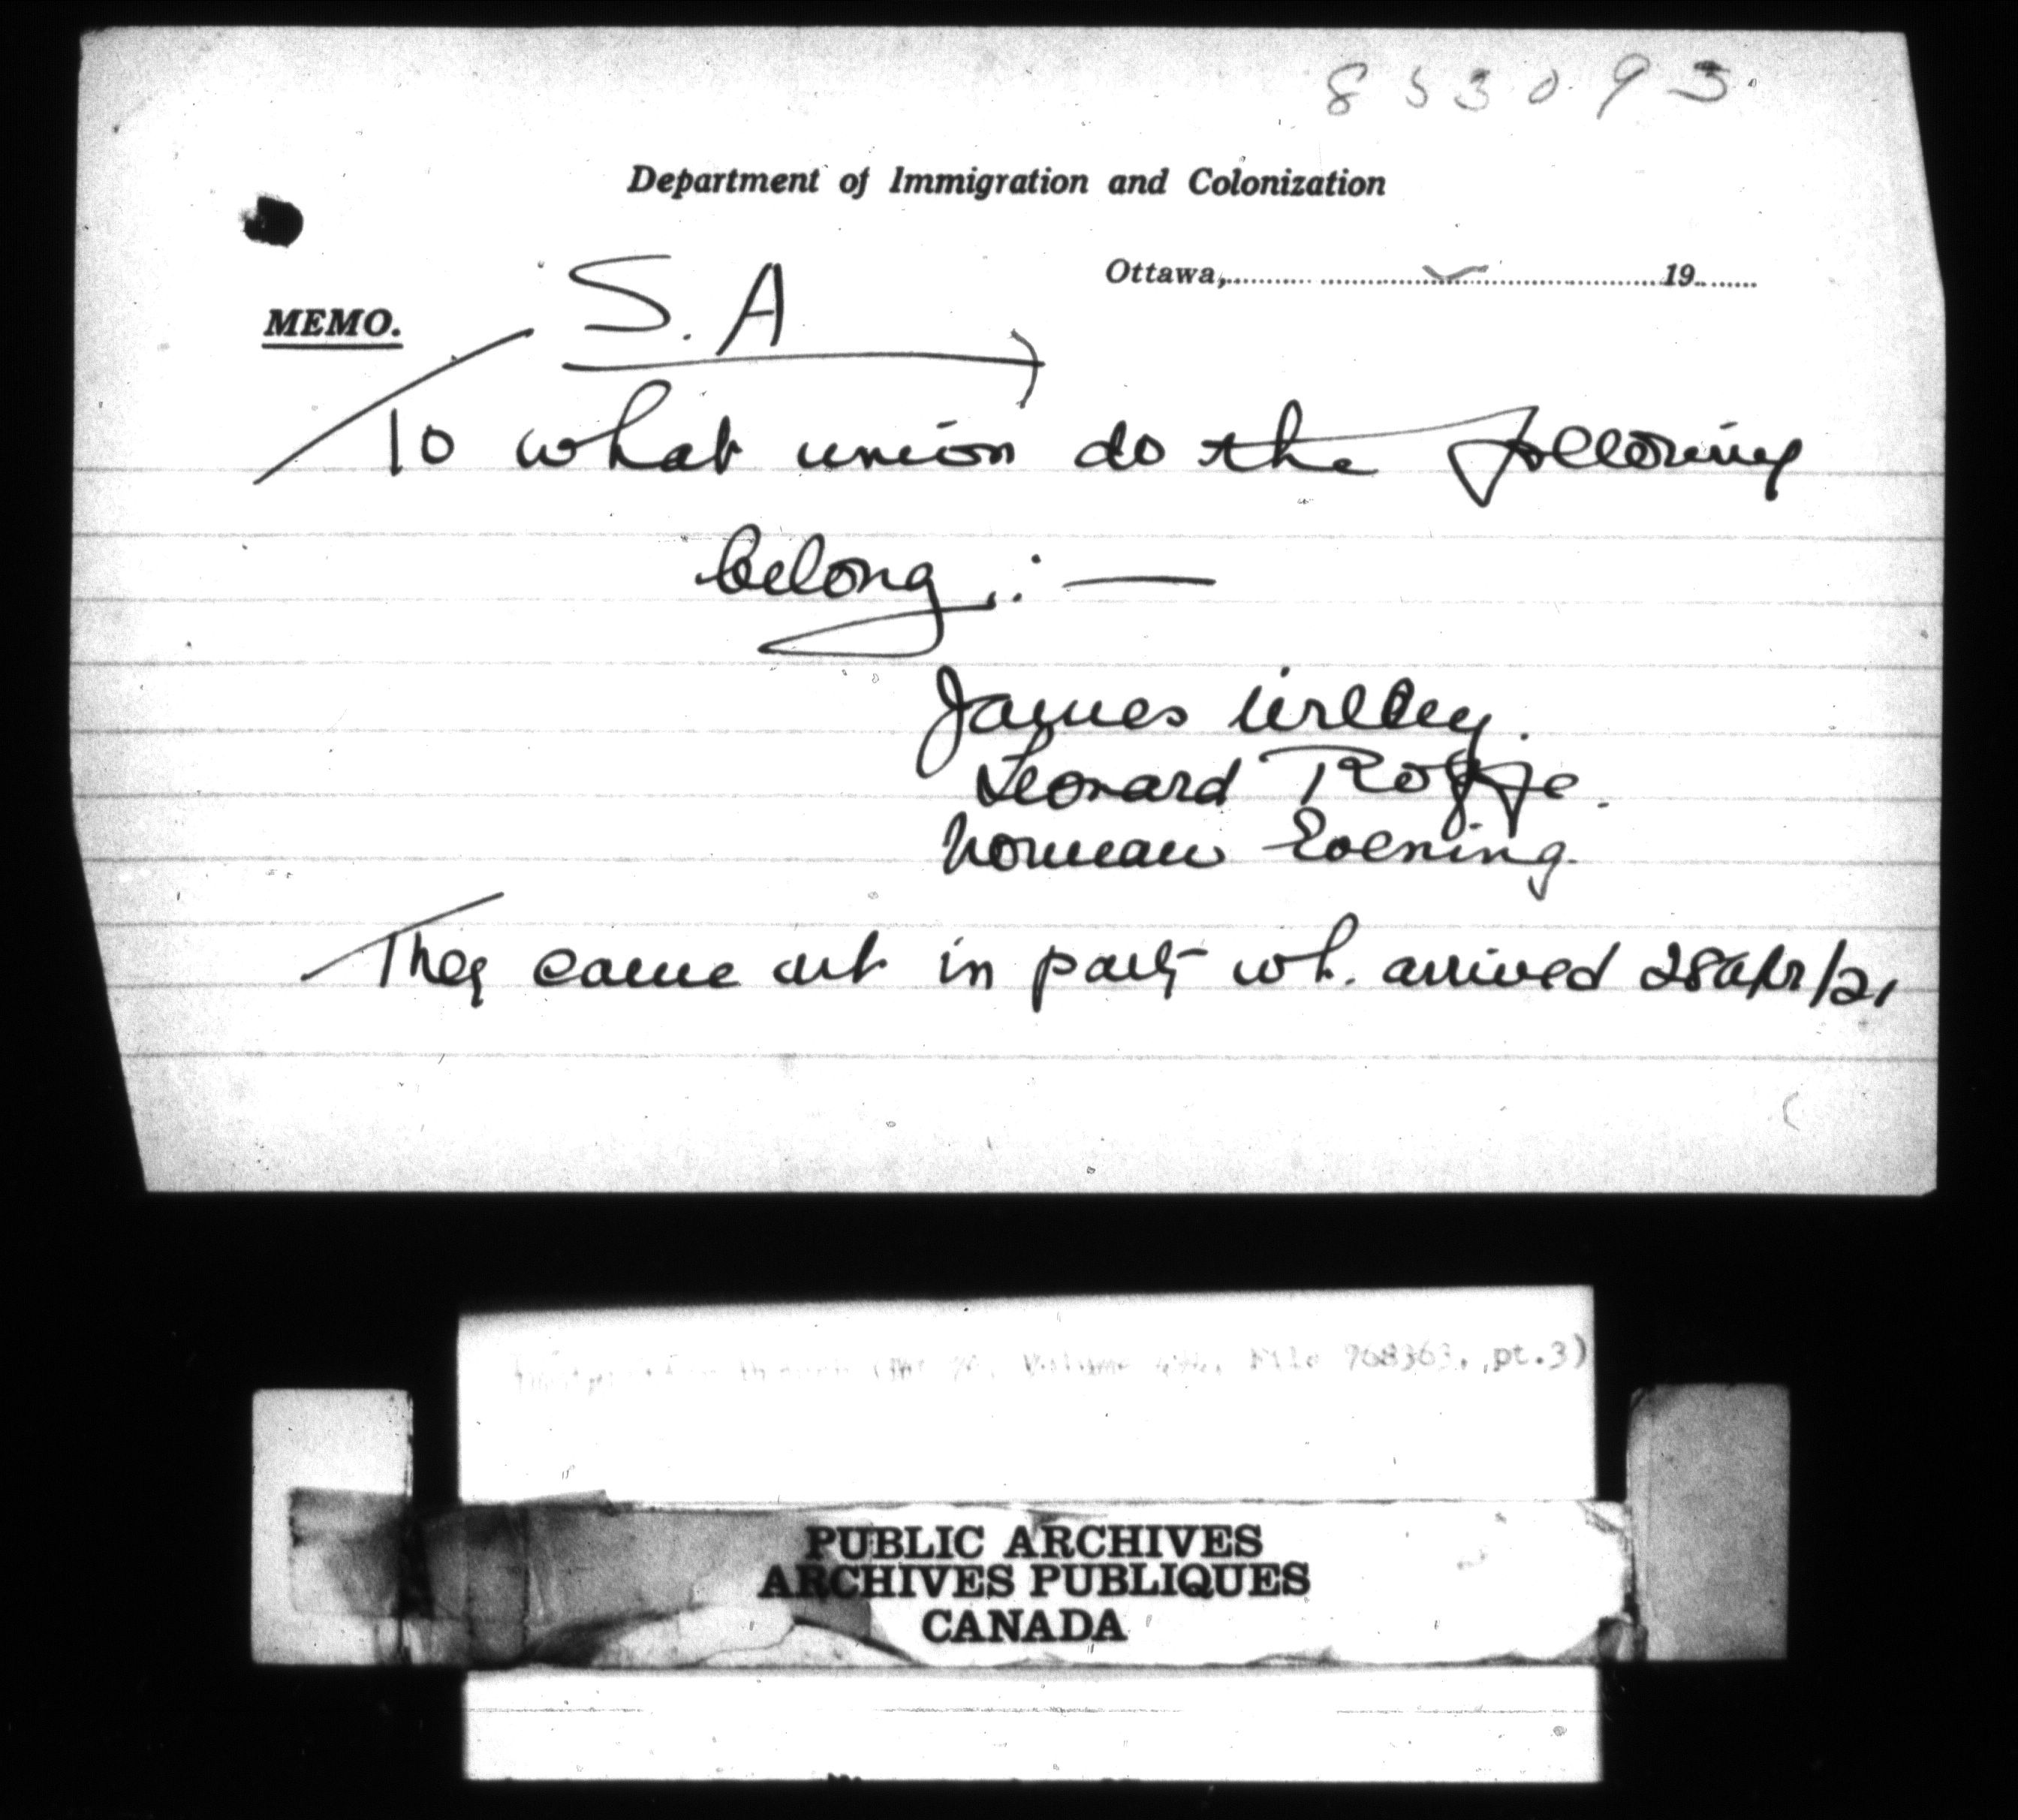 853093.
Department of Immigration and Colonization
Ottawa, 19
MEMO.
S. A
To what union do the following
belong :—
James
Leonard
Norman Evening.
They came out in party wh. arrived 28 Apr/21
File 768363, pt.3)
PUBLIC ARCHIVES
ARCHIVES PUBLIQUES
CANADA